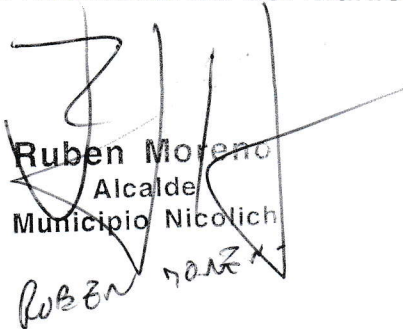 Ruben Moreno
Alcalde
Municipio Nicolich
RUBEN